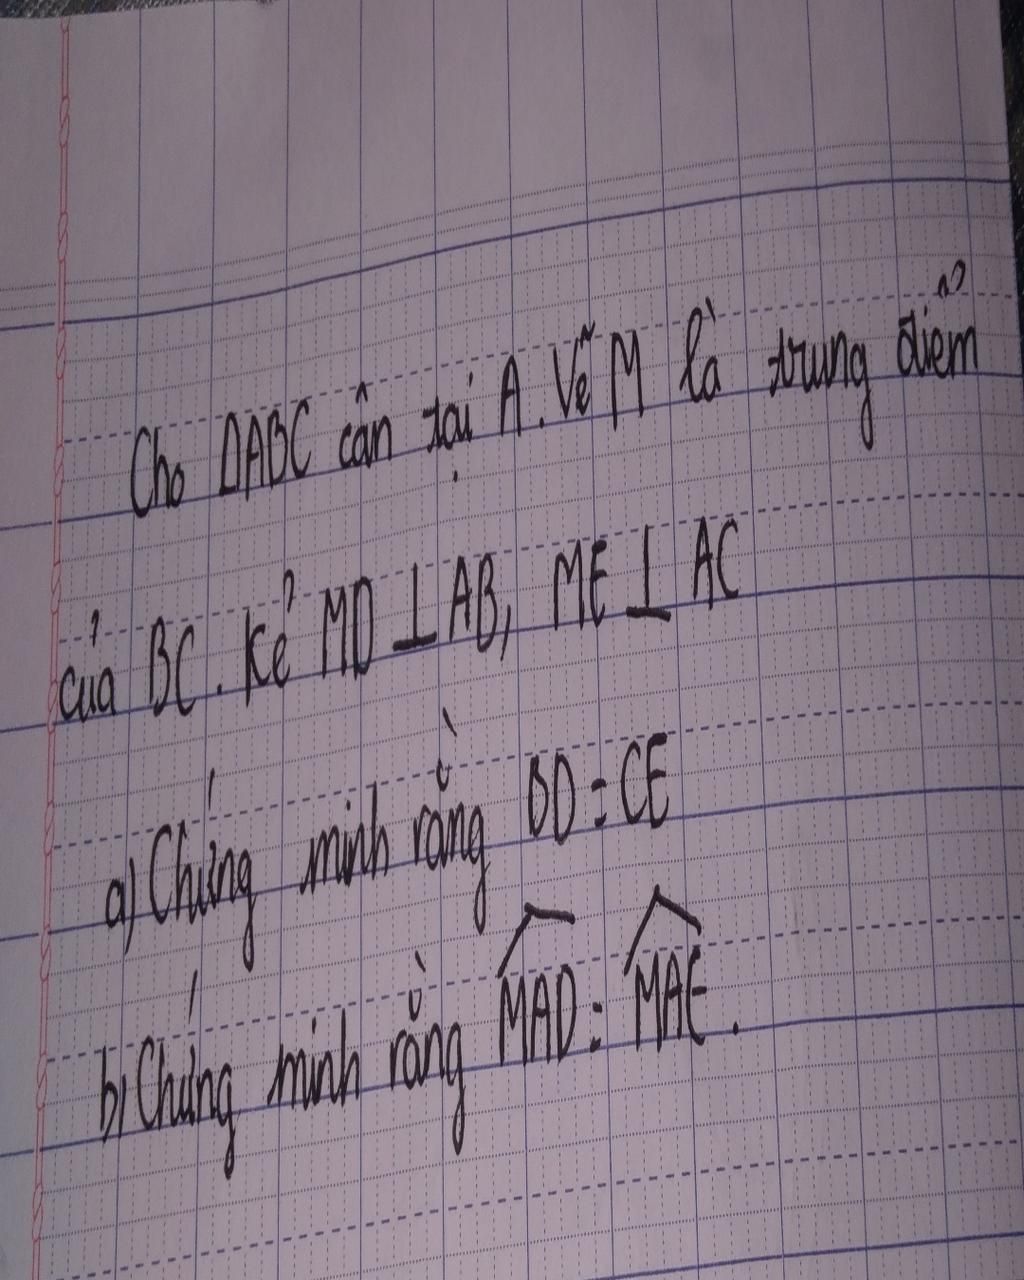 Cho ΔABC cân tại A. Vẽ M là trung điểm
của BC. Kẻ MD ⊥ AB, ME ⊥ AC
a) Chứng minh rằng BD = CE
b) Chứng minh rằng \widehat{MAD} = \widehat{MAE}.